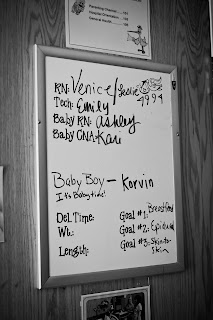 Parenting Channel
Hospital Orientation
General Health
RN: Venice/
4994
Tech: Emily
Baby RN: Ashley
Baby CNA: Kari
Baby Boy - Korvin
It's Baby time!
Del. Time: Goal #1: Breastfeed
Wt.: Goal #2: Epidural
Length: Goal #3: Skin to
Skin